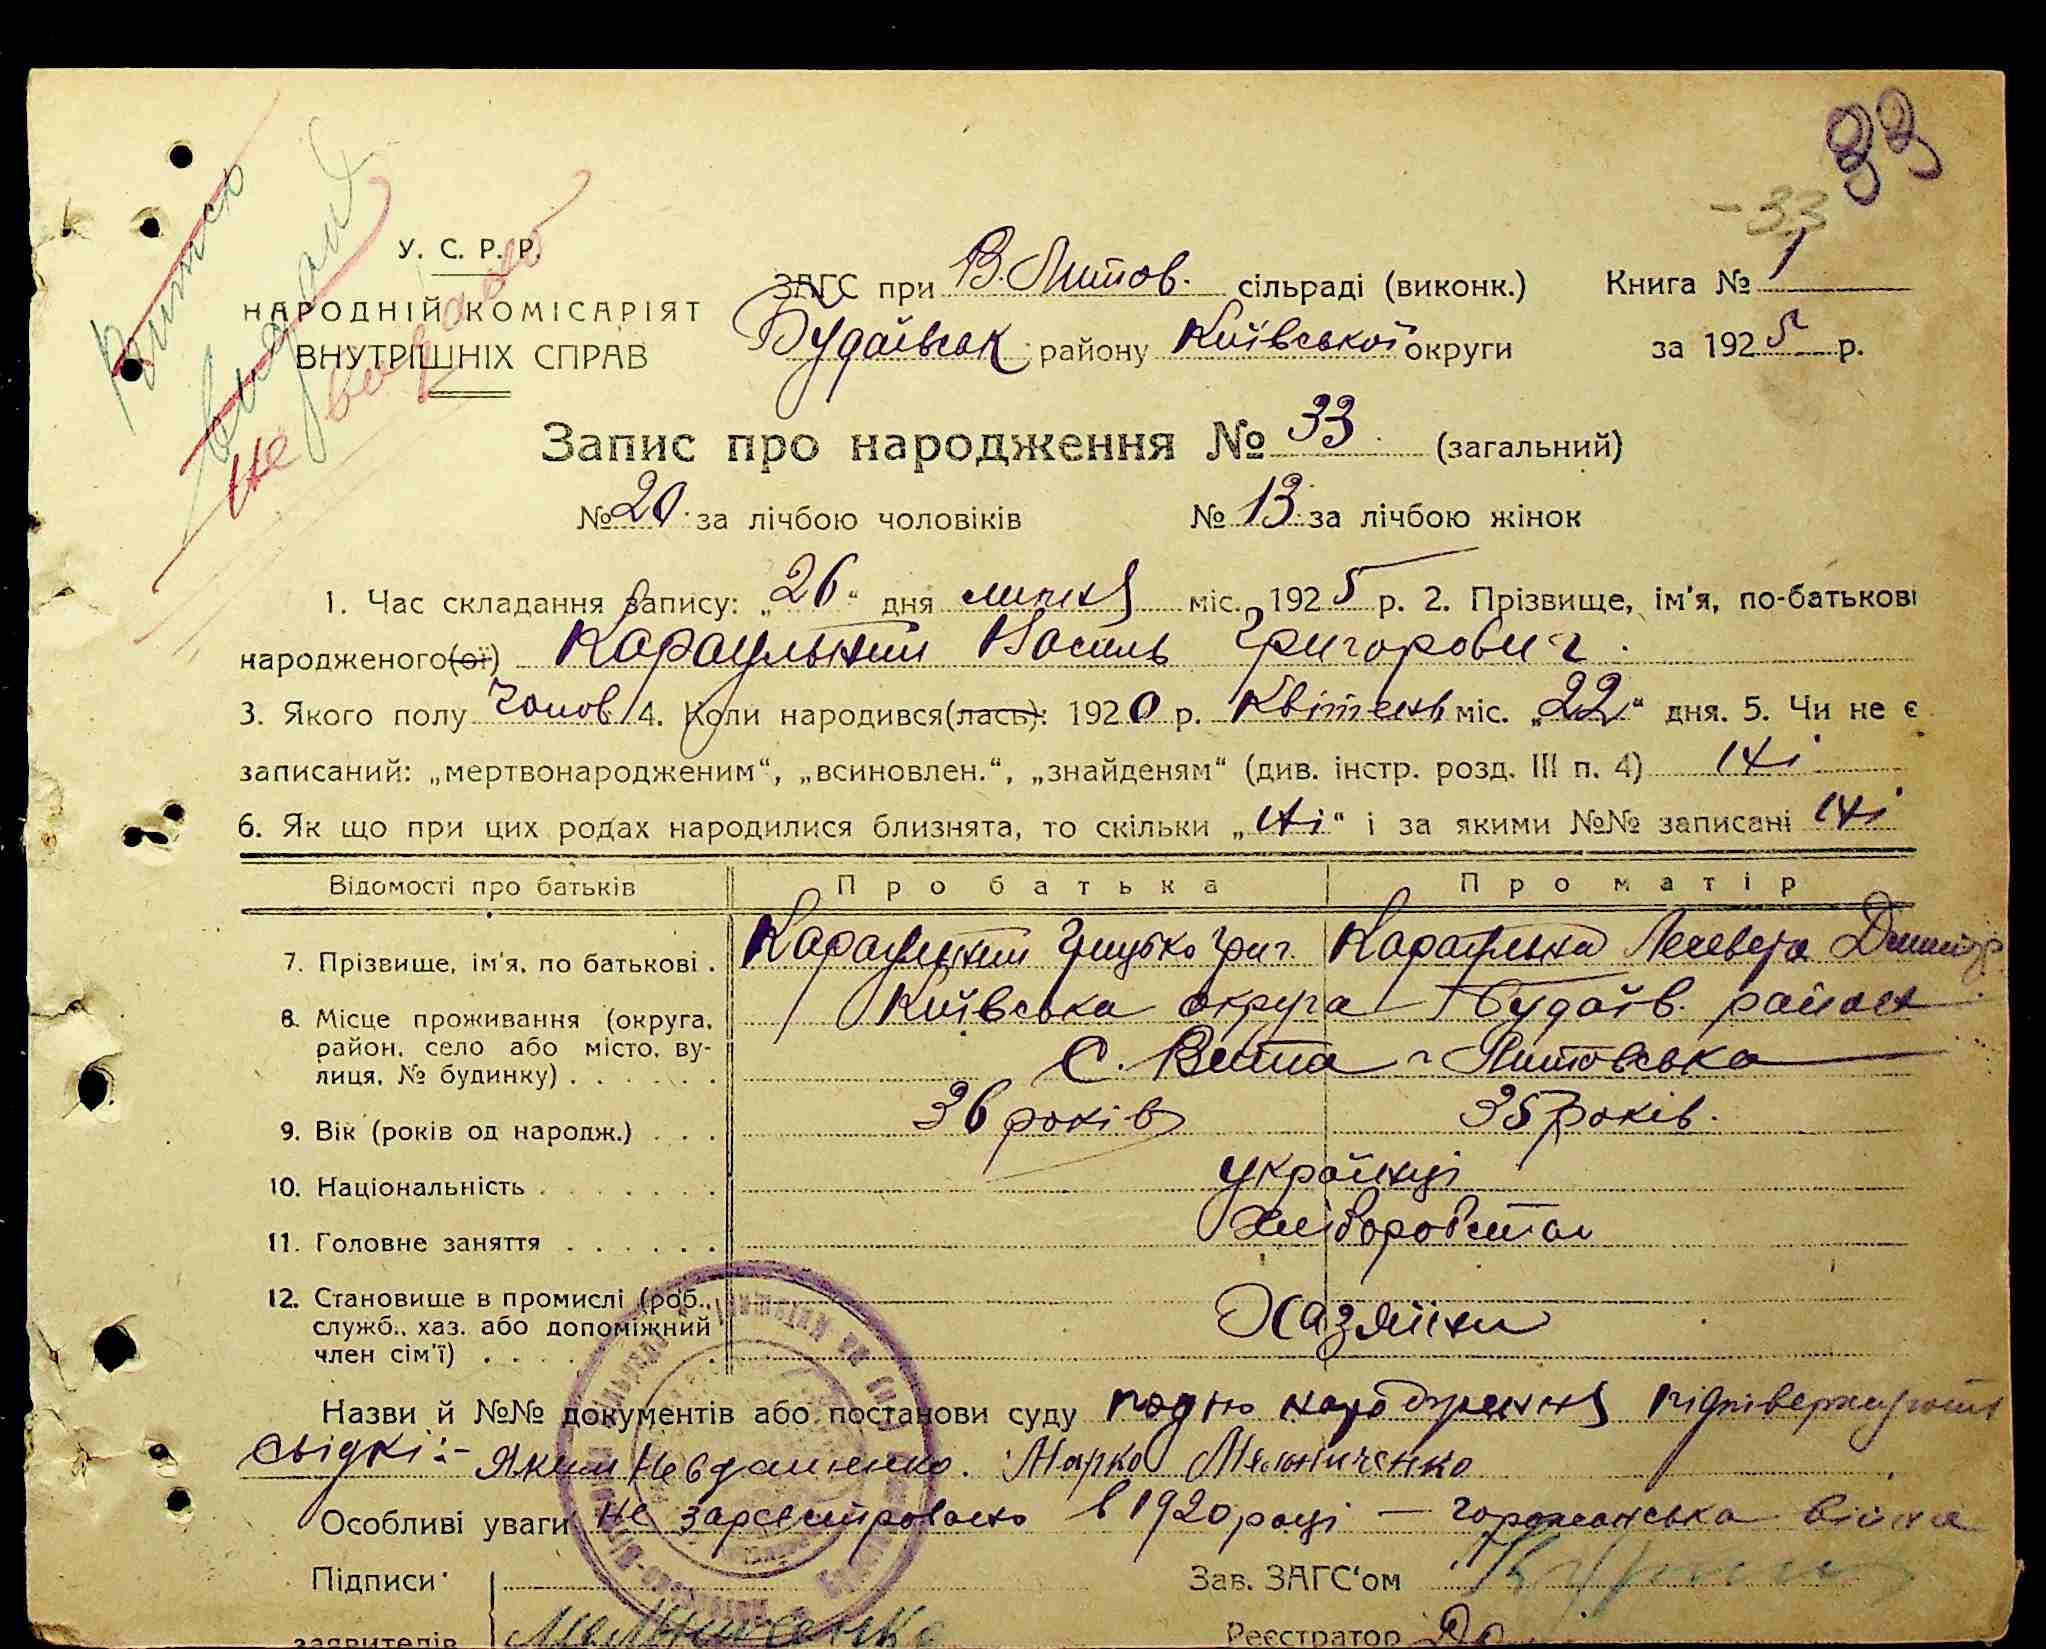 33
-33
Витяг
видан
не видано
У. С. Р. Р.
НАРОДНІЙ КОМІСАРІЯТ
ВНУТРІШНІХ СПРАВ
ЗАГС при В. Литов. сільраді (виконк.) Книга № 1
Будаївськ району Київської округи за 1925 р.
Запис про народження № 33 (загальний)
№ 20 за лічбою чоловіків № 13 за лічбою жінок
1. Час складання запису: „26" дня липня міс. 1925 р. 2. Прізвище, ім'я, по-батькові
народженого(ої) Караульний Василь Григорович.
3. Якого полу Чолов. 4. Коли народився(лась): 1920 р. Квітень міс. „22" дня. 5. Чи не є
записаний: „мертвонародженим", „всиновлен.", „знайденям" (див. інстр. розд. III п. 4) ні
6. Як що при цих родах народилися близнята, то скільки „ні" і за якими №№ записані ні
Відомості про батьків Про батька Про матір
7. Прізвище, ім'я, по батькові . Караульний Грицько Григ. Караульна Дмитр
8. Місце проживання (округа, Київська округа Будаїв. район
район, село або місто, ву- с. Вита - Литовська
лиця, № будинку) . . . . . .
9. Вік (років од народж.) . . . 36 років 35 років.
10. Національність . . . . . . . українці
11. Головне заняття . . . . . . хліборобство
12. Становище в промислі (роб.,
служб., хаз. або допоміжний Хазяїни
член сім'ї) . . . . . . .
Назви й №№ документів або постанови суду подію народження підтверджують
свідки:- Яким Невдашенко. Марко Мельниченко
Особливі уваги не зареєстровано в 1920 році — горожанська війна
Підписи Зав. ЗАГС'ом
заявителів Мельниченко Реєстратор